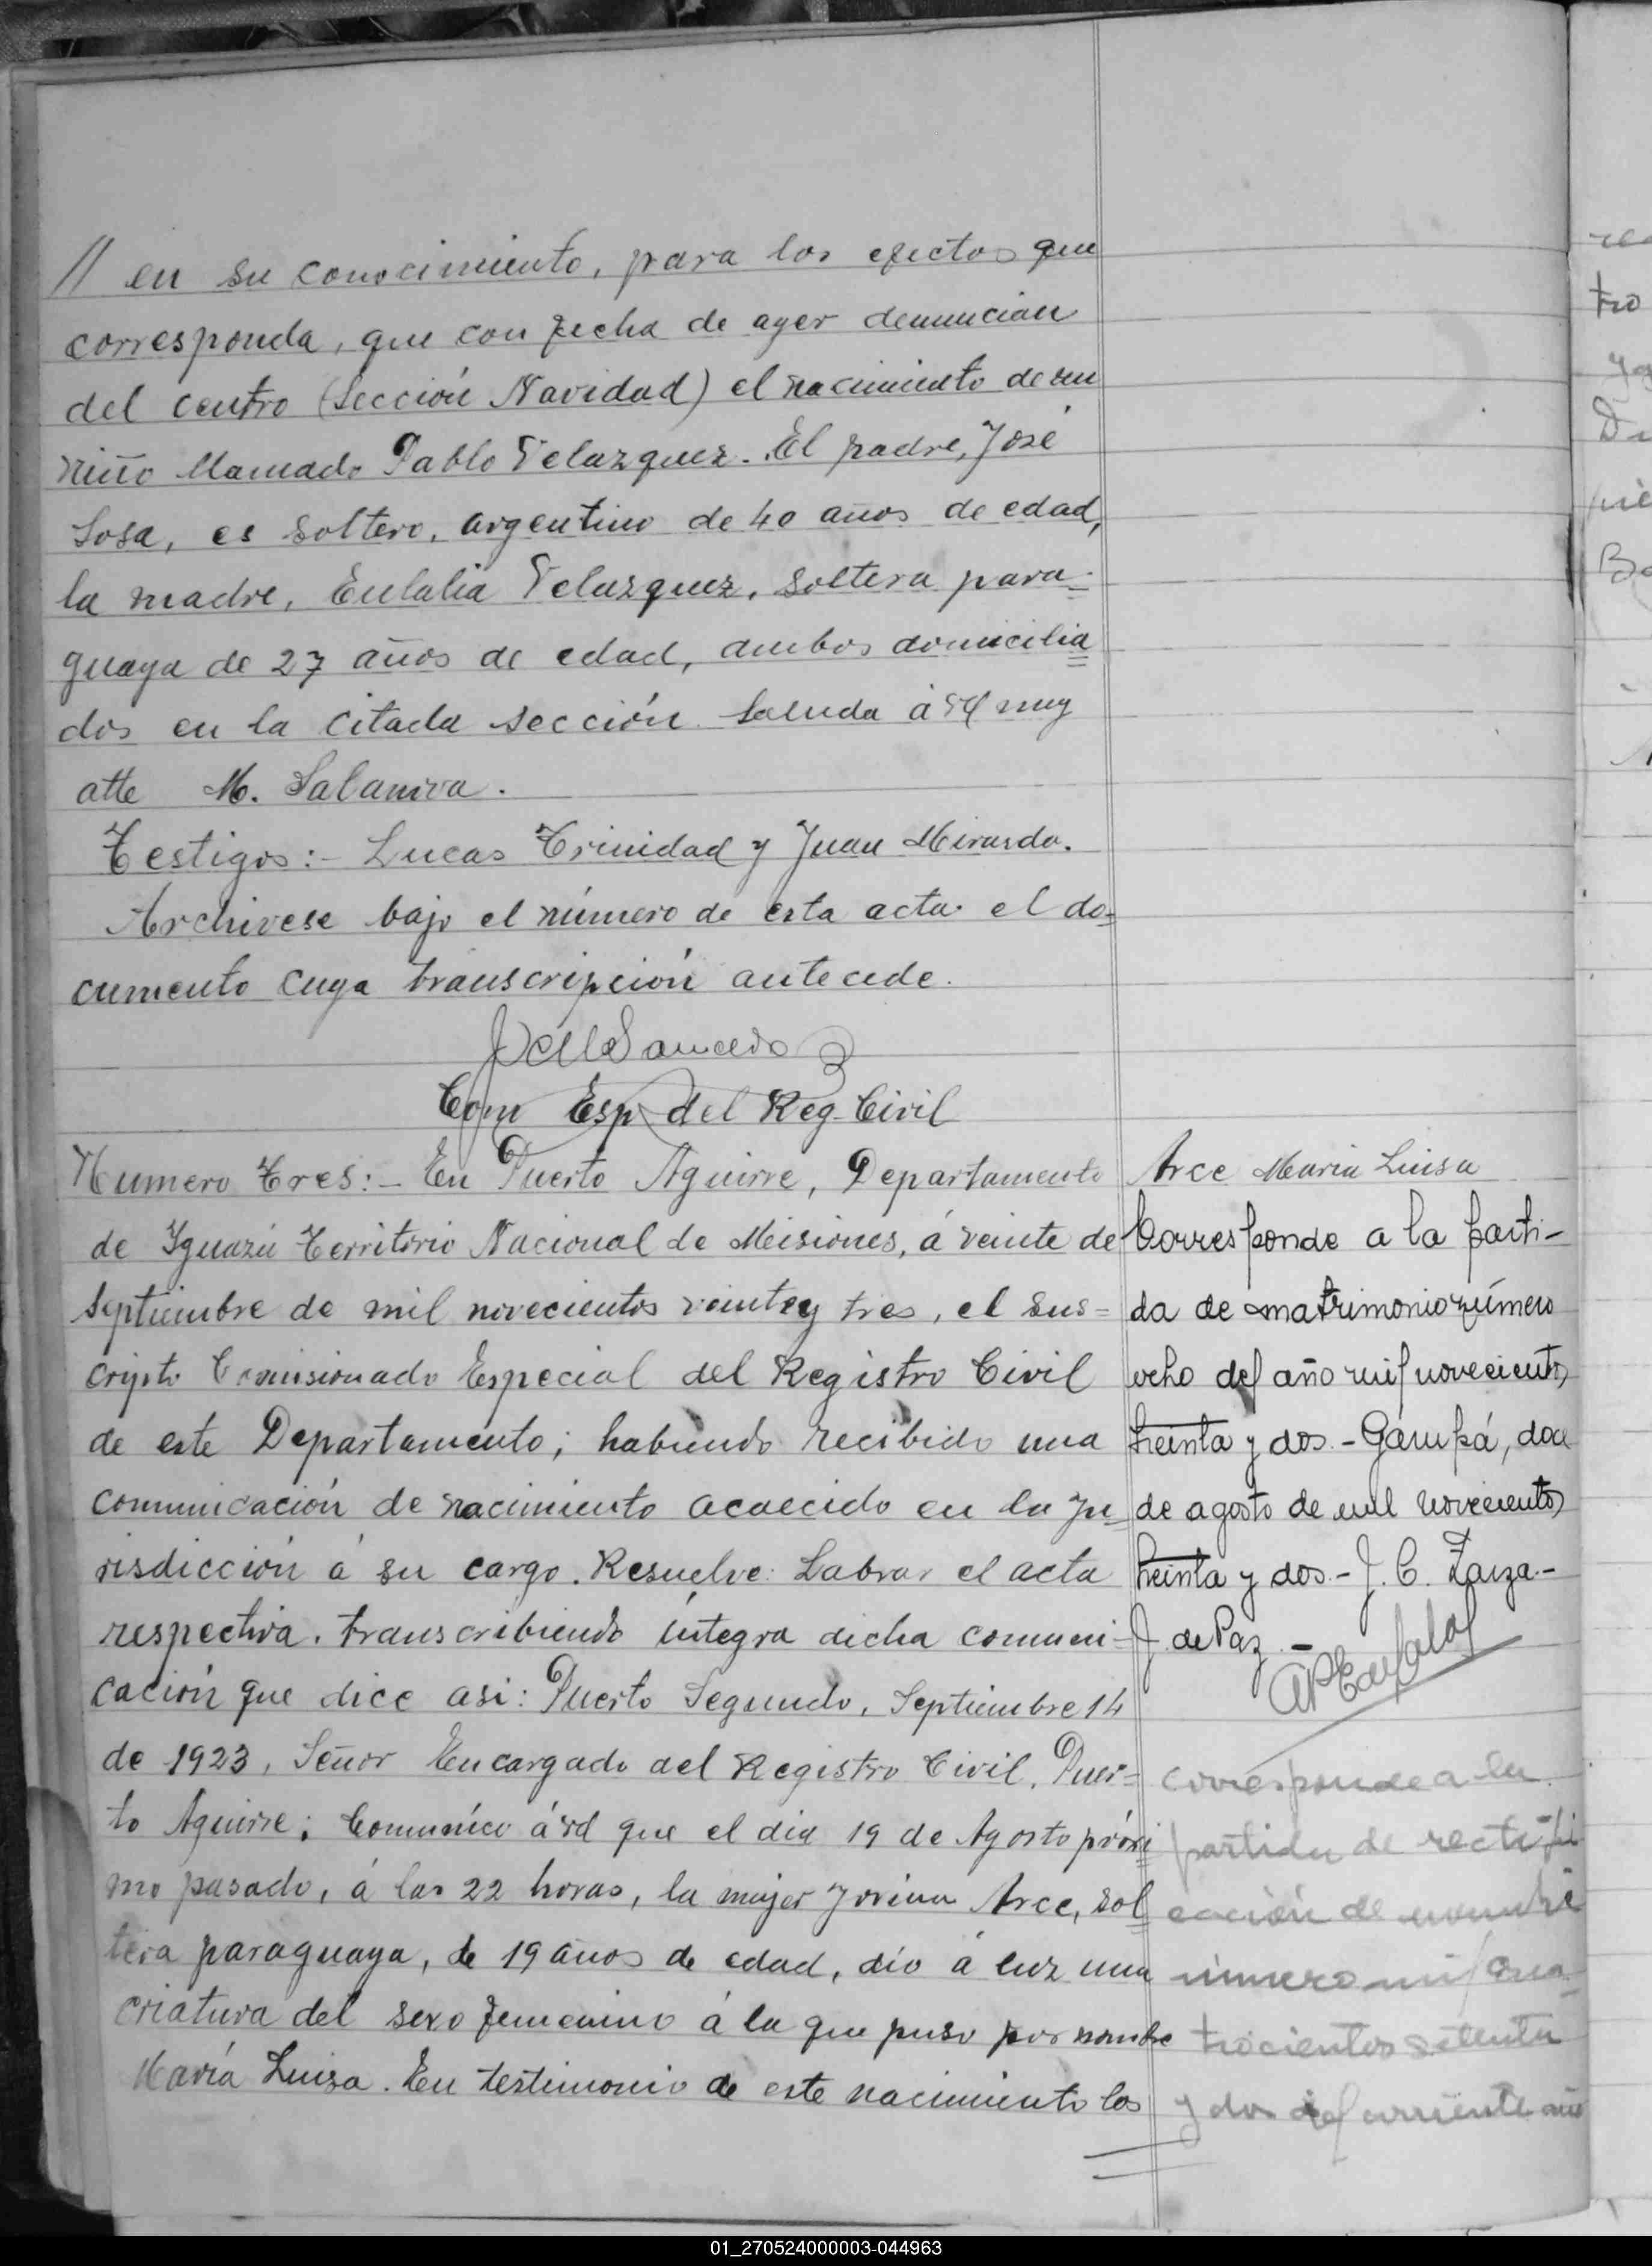 // en su conocimiento, para los efectos que
corresponda, que con fecha de ayer denuncian
del centro (Sección Navidad) el nacimiento de un
niño llamado Pablo Velazquez. El padre, José
Sosa, es soltero, argentino de 40 años de edad,
la madre, Eulalia Velazquez, soltera para-
guaya de 27 años de edad, ambos domicilia
dos en la citada sección. Saluda á Vd muy
atte M. Salaniva.
Testigos:- Lucas Trinidad y Juan Miranda.
Archivese bajo el número de esta acta el do=
cumento cuya transcripción antecede.
Com Esp del Reg. Civil
Numero Tres:- En Puerto Aguirre, Departamento
de Iguazú Territorio Nacional de Misiones, á veinte de
Septiembre de mil novecientos veintey tres, el sus=
cripto Comisionado Especial del Registro Civil
de este Departamento; habiendo recibido una
comunicación de nacimiento acaecido en la ju=
risdicción á su cargo. Resuelve: Labrar el acta
respectiva, transcribiendo íntegra dicha comuni=
cación que dice asi: Puerto Segundo, Septiembre 14
de 1923, Señor Encargado del Registro Civil, Puer=
to Aguirre; Comuníco á Vd que el dia 19 de Agosto próxi
mo pasado, á las 22 horas, la mujer Jovina Arce, sol
tera paraguaya, de 19 años de edad, dio á luz una
criatura del sexo femenino á la que puso por nombre
María Luisa. En testimonio de este nacimiento los
Arce Maria Luisa
Corresponde a la parti-
da de matrimonio número
ocho del año mil novecientos
treinta y dos.- Garupá, doce
de agosto de mil novecientos
treinta y dos.- J. C. Zarza.-
J. de Paz.-
corresponde a la
partida de rectifi
cación de nombre
número mil cua-
trocientos setenta
y dos del corriente año
01_270524000003-044963